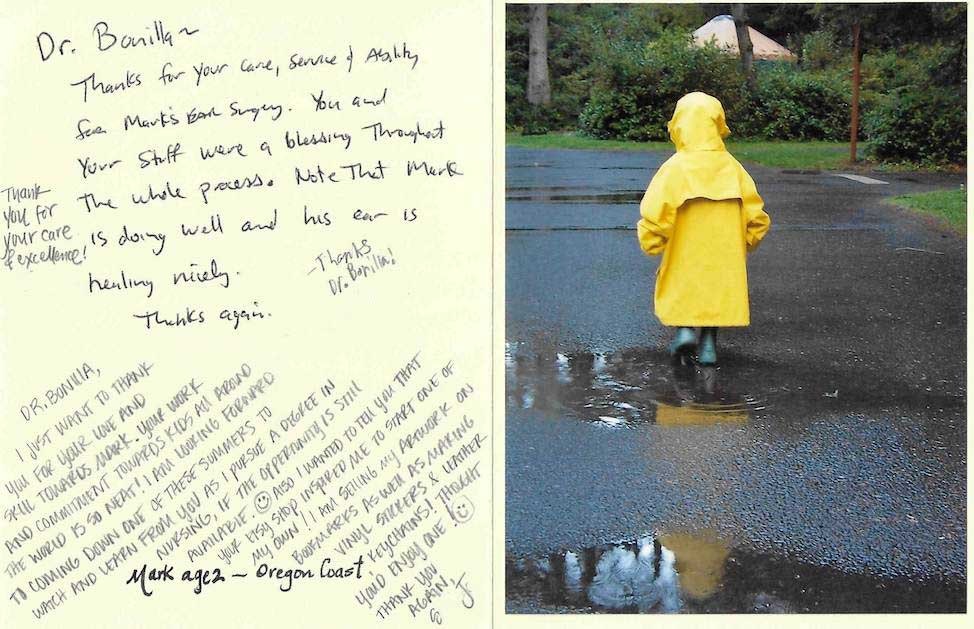 Dr. Bonilla ~
Thanks for your care, service & Ability
for Mark's Ear Surgery. You and
Your Staff were a blessing Throughout
The whole process. Note That Mark
is doing well and his ear is
healing nicely.
Thanks again.
Thank
you for
your care
& excellence!
-Thanks
Dr. Bonilla!
DR. BONILLA,
I JUST WANT TO THANK
YOU FOR YOUR LOVE AND
SKILL TOWARDS MARK. YOUR WORK
AND COMMITMENT TOWARDS KIDS ALL AROUND
THE WORLD IS SO NEAT! I AM LOOKING FORWARD
TO COMING DOWN ONE OF THESE SUMMERS TO
WATCH AND LEARN FROM YOU AS I PURSUE A DEGREE IN
NURSING, IF THE OPPORTUNITY IS STILL
AVAILABLE ☺ ALSO I WANTED TO TELL YOU THAT
YOUR ETSY SHOP INSPIRED ME TO START ONE OF
MY OWN! I AM SELLING MY ARTWORK ON
BOOKMARKS AS WELL AS MAKING
VINYL STICKERS & LEATHER
KEYCHAINS! I THOUGHT
YOU'D ENJOY ONE! ☺
THANK YOU
AGAIN
Mark age 2 — Oregon Coast